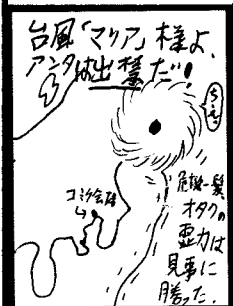 台風「マリア」様よ、
アンタは出禁だ!
ちぇっ
コミケ会場
危機一髪、
オタクの
霊力は
見事に
勝った.